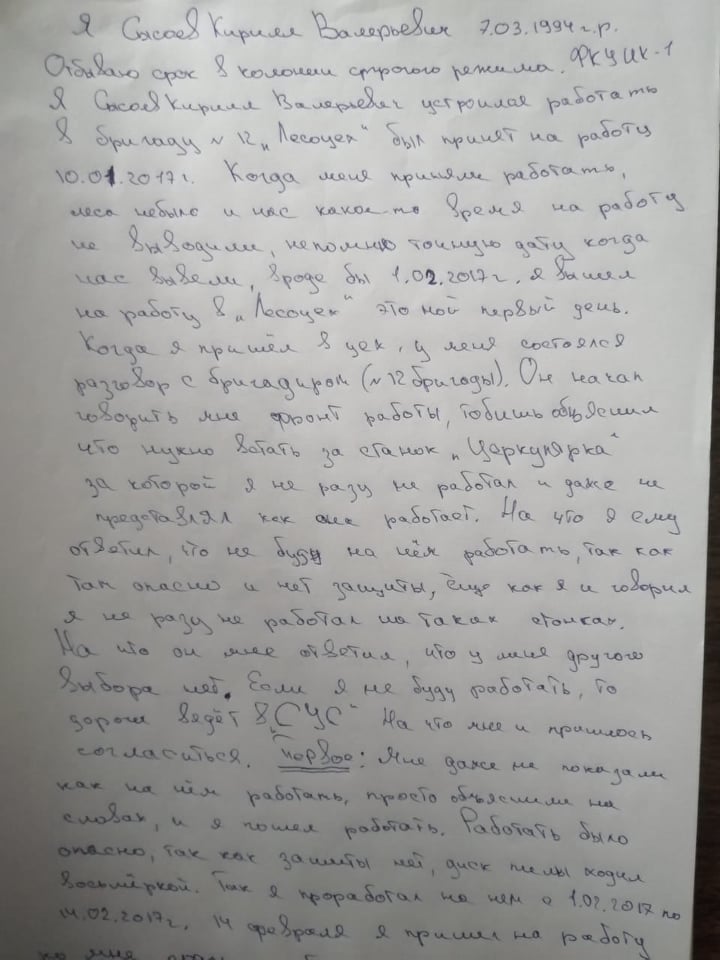 Я Сысоев Кирилл Валерьевич 7.03.1994 г.р.
Отбываю срок в колонии строгого режима. ФКУ ИК-1
Я Сысоев Кирилл Валерьевич устроился работать
в бригаду №12 „Лесоцех" был принят на работу
10.01.2017г. Когда меня приняли работать,
леса небыло и нас какое-то время на работу
не выводили, непомню точную дату когда
нас вывели, вроде бы 1.02.2017г. я вышел
на работу в „Лесоцех" это мой первый день.
Когда я пришёл в цех, у меня состоялся
разговор с бригадиром (№12 бригоды). Он начал
говорить мне фронт работы, тобишь объяснил
что нужно встать за станок „Церкулярка"
за которой я не разу не работал и даже не
представлял как она работает. На что я ему
ответил, что не буду на нём работать, так как
там опасно и нет защиты, ещё как я и говорил
я не разу не работал на таких станках.
На что он мне ответил, что у меня другого
выбора нет. Если я не буду работать, то
дорога ведёт в „СУС" На что мне и пришлось
согласиться. Первое: Мне даже не показали
как на нём работать, просто объяснили на
словах, и я пошел работать. Работать было
опасно, так как защиты нет, диск пилы ходил
восьмёркой. Так я проработал на нем с 1.02.2017 по
14.02.2017г. 14 февраля я пришел на работу
ко мне